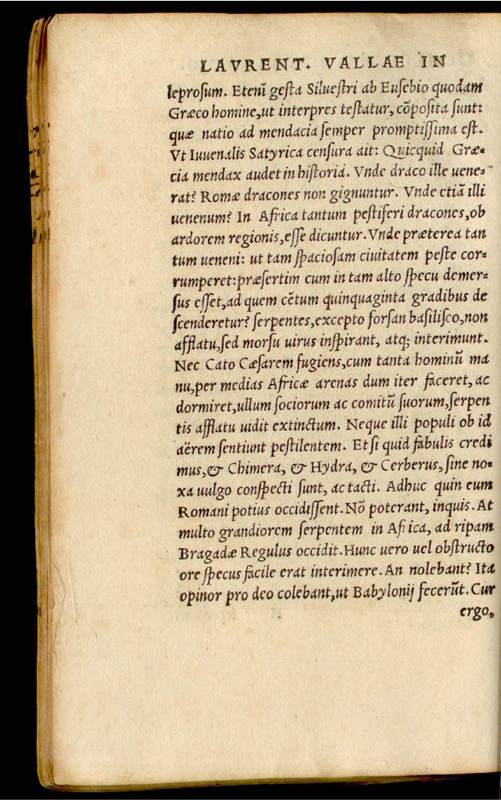 LAVRENT. VALLAE IN
leprosum. Etenī gesta Siluestri ab Eusebio quodam
Græco homine,ut interpres testatur, cōposita sunt:
quæ natio ad mendacia semper promptissima est.
Vt Iuuenalis Satyrica censura ait: Quicquid Græ-
cia mendax audet in historia. Vnde draco ille uene-
rat? Romæ dracones non gignuntur. Vnde etiā illi
uenenum? In Africa tantum pestiferi dracones,ob
ardorem regionis,esse dicuntur. Vnde præterea tan
tum ueneni: ut tam spaciosam ciuitatem peste cor-
rumperet:præsertim cum in tam alto specu demer-
sus esset,ad quem cētum quinquaginta gradibus de
scenderetur? serpentes,excepto forsan basilisco,non
afflatu,sed morsu uirus inspirant, atq; interimunt.
Nec Cato Cæsarem fugiens,cum tanta hominū ma
nu,per medias Africæ arenas dum iter faceret, ac
dormiret,ullum sociorum ac comitū suorum,serpen
tis afflatu uidit extinctum. Neque illi populi ob id
aërem sentiunt pestilentem. Et si quid fabulis credi
mus,& Chimera, & Hydra, & Cerberus, sine no-
xa uulgo conspecti sunt, ac tacti. Adhuc quin eum
Romani potius occidissent. Nō poterant, inquis. At
multo grandiorem serpentem in Africa, ad ripam
Bragadæ Regulus occidit. Hunc uero uel obstructo
ore specus facile erat interimere. An nolebant? Ita
opinor pro deo colebant,ut Babylonij fecerūt. Cur
ergo,